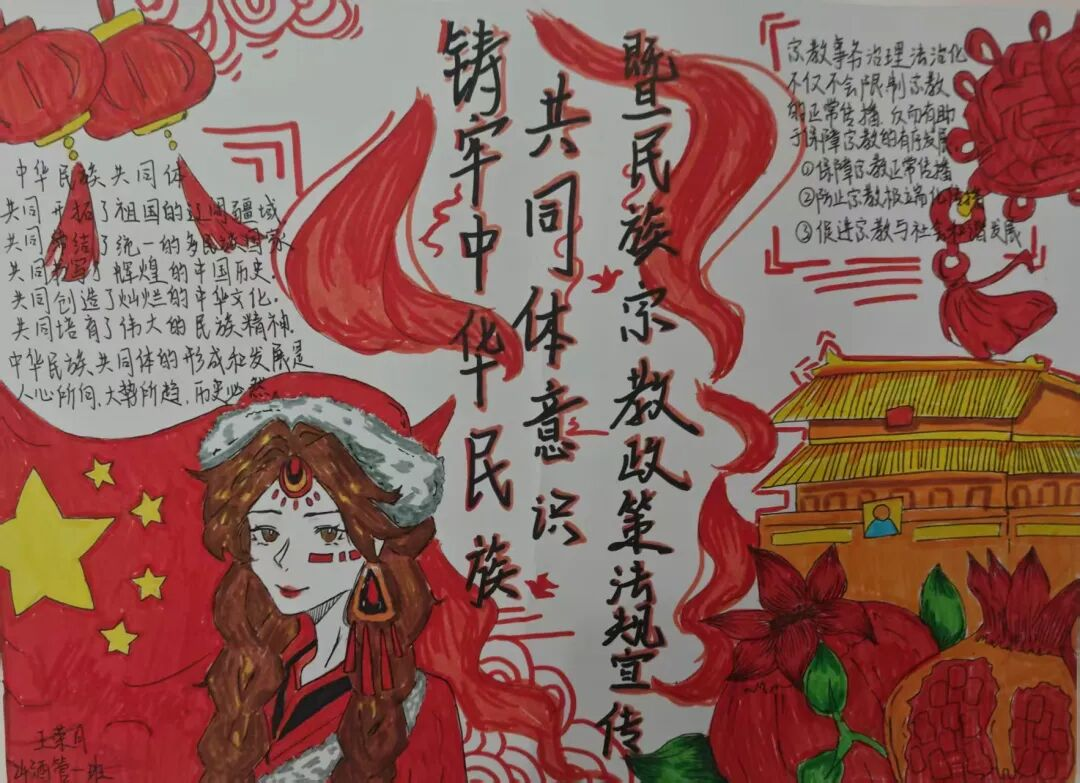 铸牢中华民族
共同体意识
暨民族宗教政策法规宣传
中华民族共同体
共同开拓了祖国的辽阔疆域、
共同缔结了统一的多民族国家、
共同书写了辉煌的中国历史、
共同创造了灿烂的中华文化、
共同培育了伟大的民族精神、
中华民族共同体的形成和发展是
人心所向、大势所趋、历史必然
宗教事务治理法治化
不仅不会限制宗教
的正常传播、反而有助
于保障宗教的有序发展
①保障宗教正常传播
②防止宗教极端化传播
③促进宗教与社会和谐发展
王荣月
24酒管一班